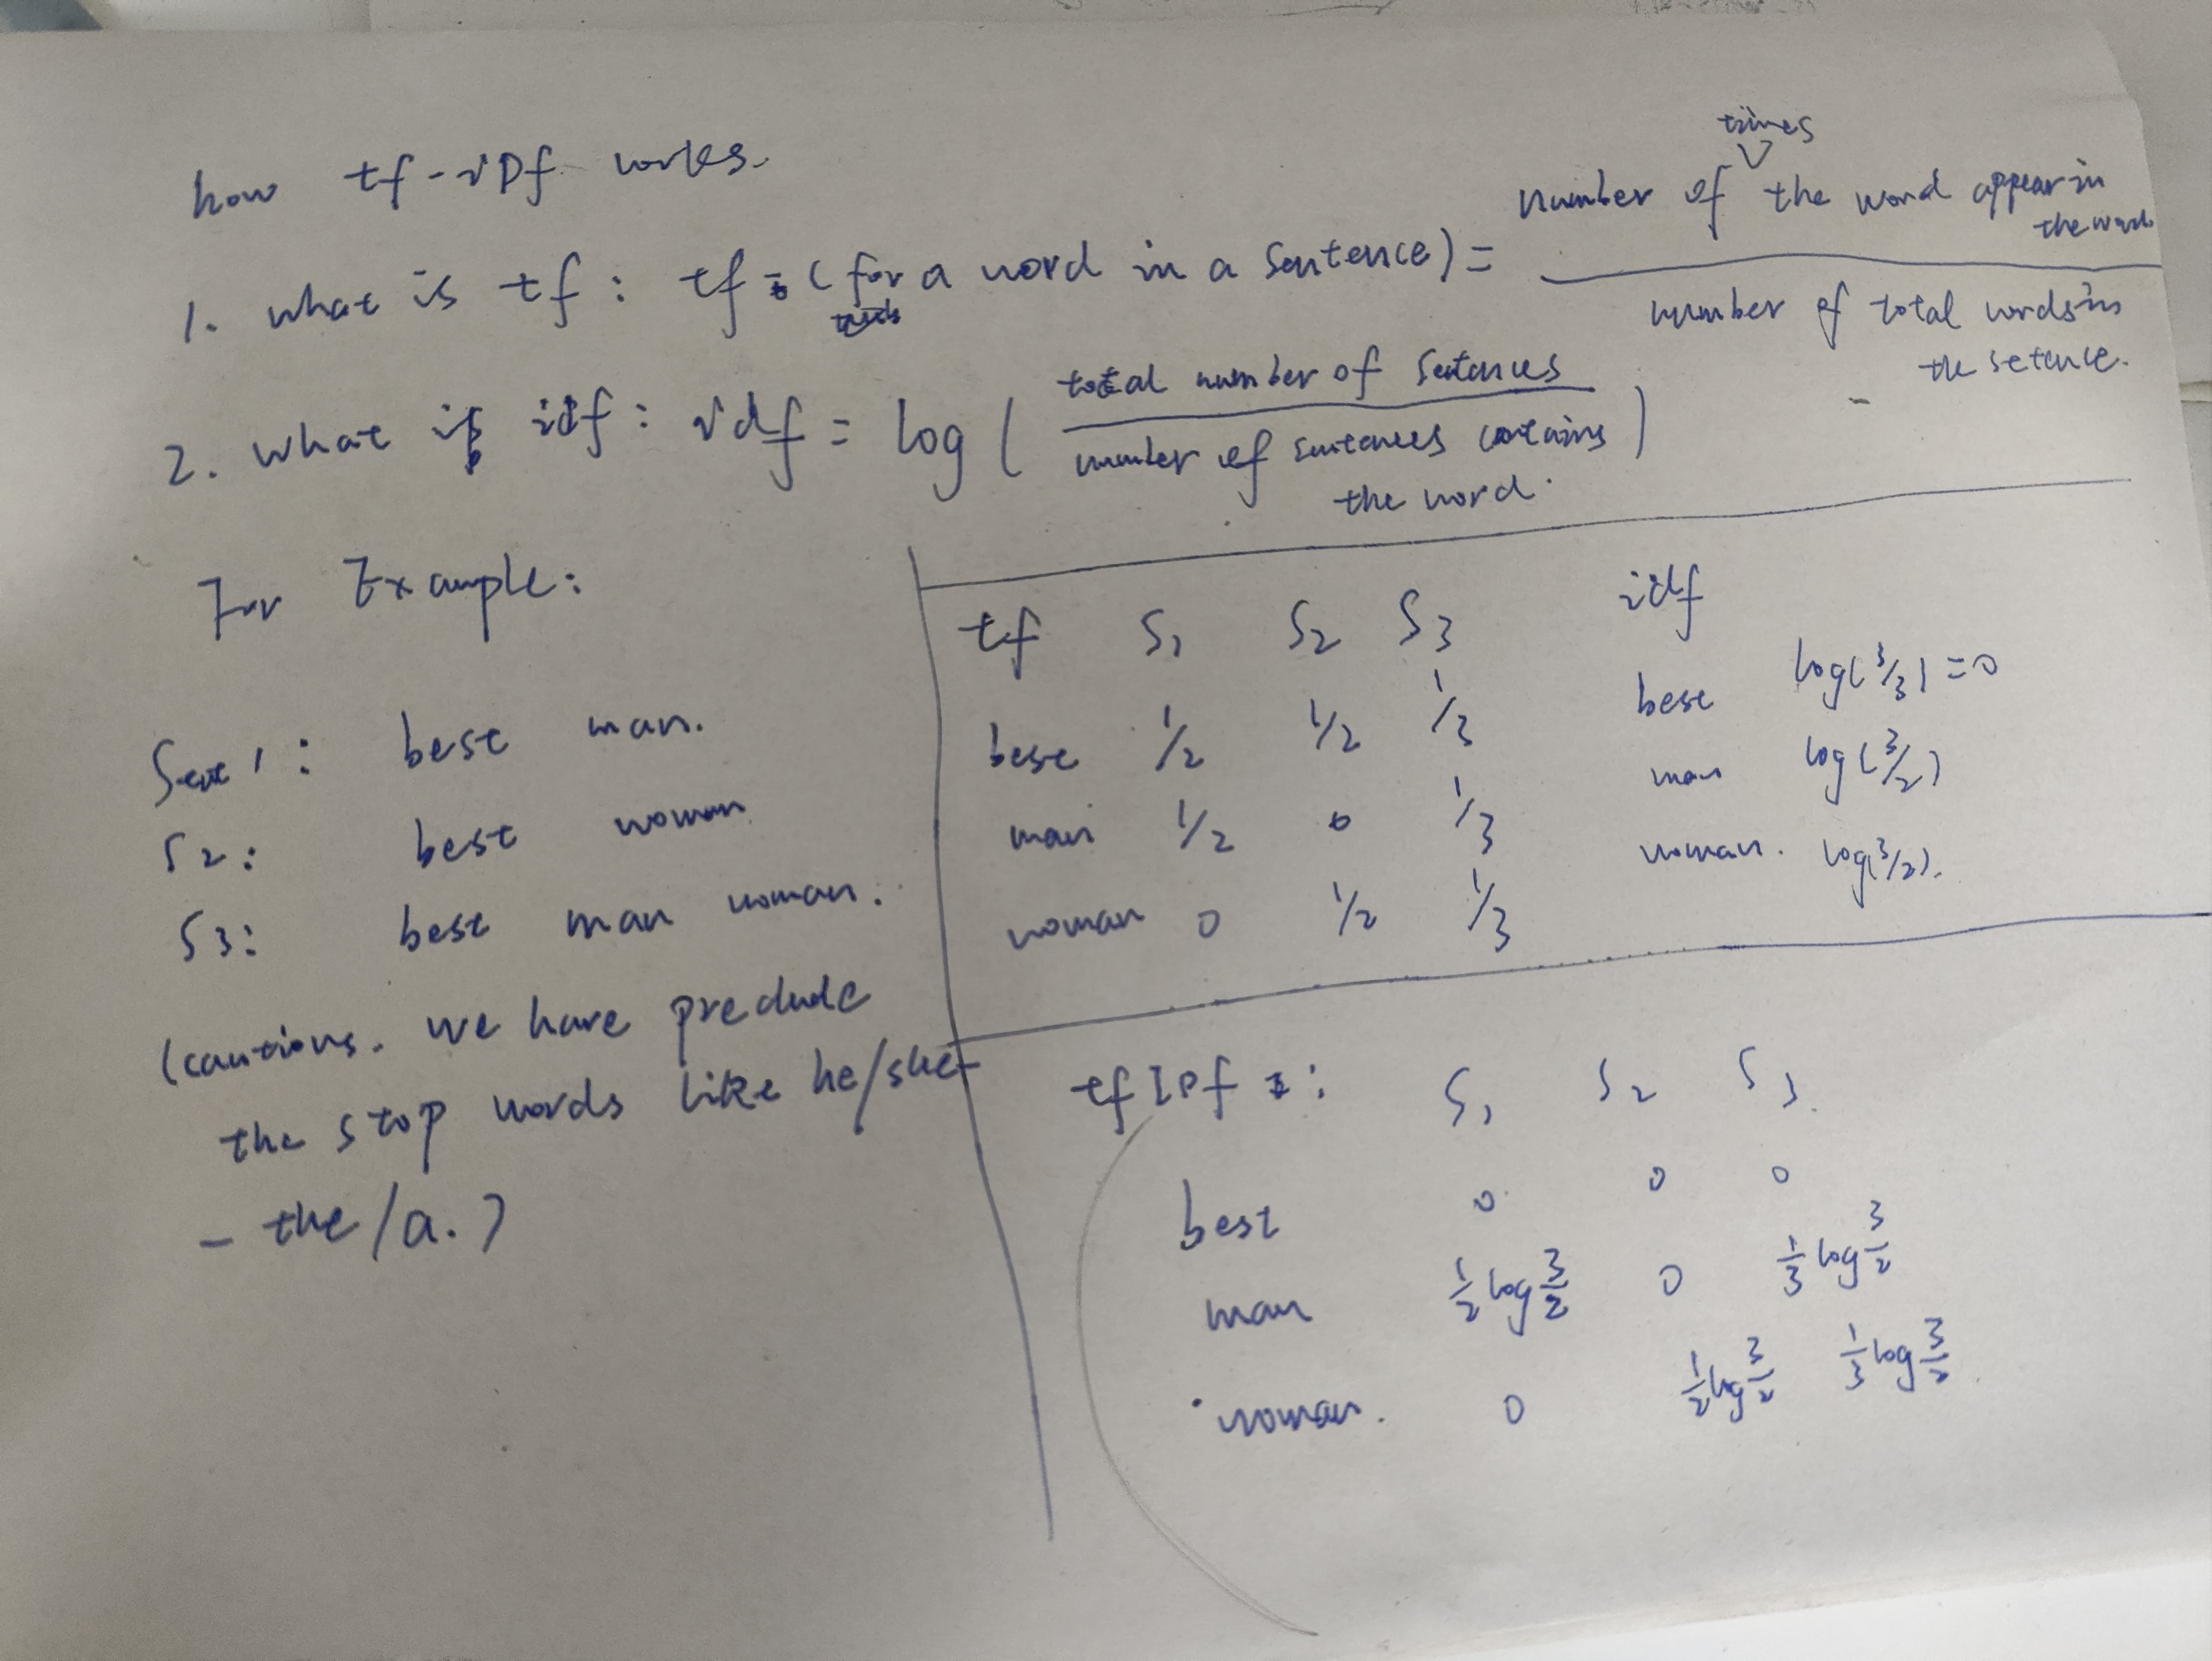 how tf-iDf works.
1. what is tf: tf = (for a word in a sentence) = number of times the word appear in the word / number of total words in the setence.
2. what is idf: idf = log ( total number of sentences / number of sentences contains the word. )
For Example:
Sent 1: best man.
S2: best woman
S3: best man woman.
(cautions. we have preclude
the stop words like he/she
- the/a.)
tf S1 S2 S3
best 1/2 1/2 1/3
man 1/2 0 1/3
woman 0 1/2 1/3
idf
best log(3/3) = 0
man log(3/2)
woman. log(3/2).
tfIDf : S1 S2 S3.
best 0 0 0
man 1/2 log 3/2 0 1/3 log 3/2
woman. 0 1/2 log 3/2 1/3 log 3/2.